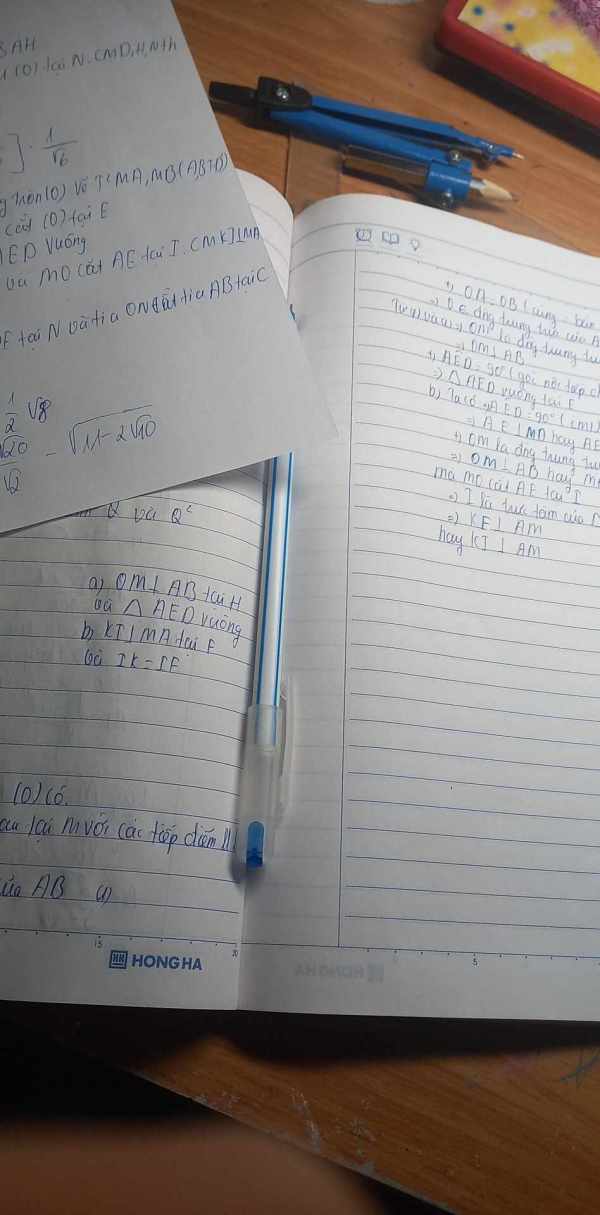 BAH
(O) tại N. CMD, H, N th
] . 1/√6
tròn (O) vẽ T² MA, MB (A, B
cắt (O) tại E
AED vuông
và MO cắt AE tại I. CM KI ⊥ MA
tại N và tia ON cắt tia AB tại C
1/2 √8
√20/√2 - √(11 - 2√10)
Q và Q²
a) OM ⊥ AB tại H
và △ AED vuông
b) KI ⊥ MA tại F
và IK = IF
(O) có
tại M với các tiếp điểm
của AB (1)
HH HONG HA
+) OA = OB (cùng bán
=> O € đng trung trực của A
Từ (1) và => OM là đng trung
=> OM ⊥ AB
+) AED = 90° (góc nội tiếp
=> △ AED vuông tại E
b) Ta có AED = 90° (cmt)
=> AE ⊥ MD hay AE
+) OM là đng trung
=> OM ⊥ AB hay
mà MO cắt AE tại I
=> I là trực tâm của
=> KF ⊥ AM
hay KI ⊥ AM
15
5